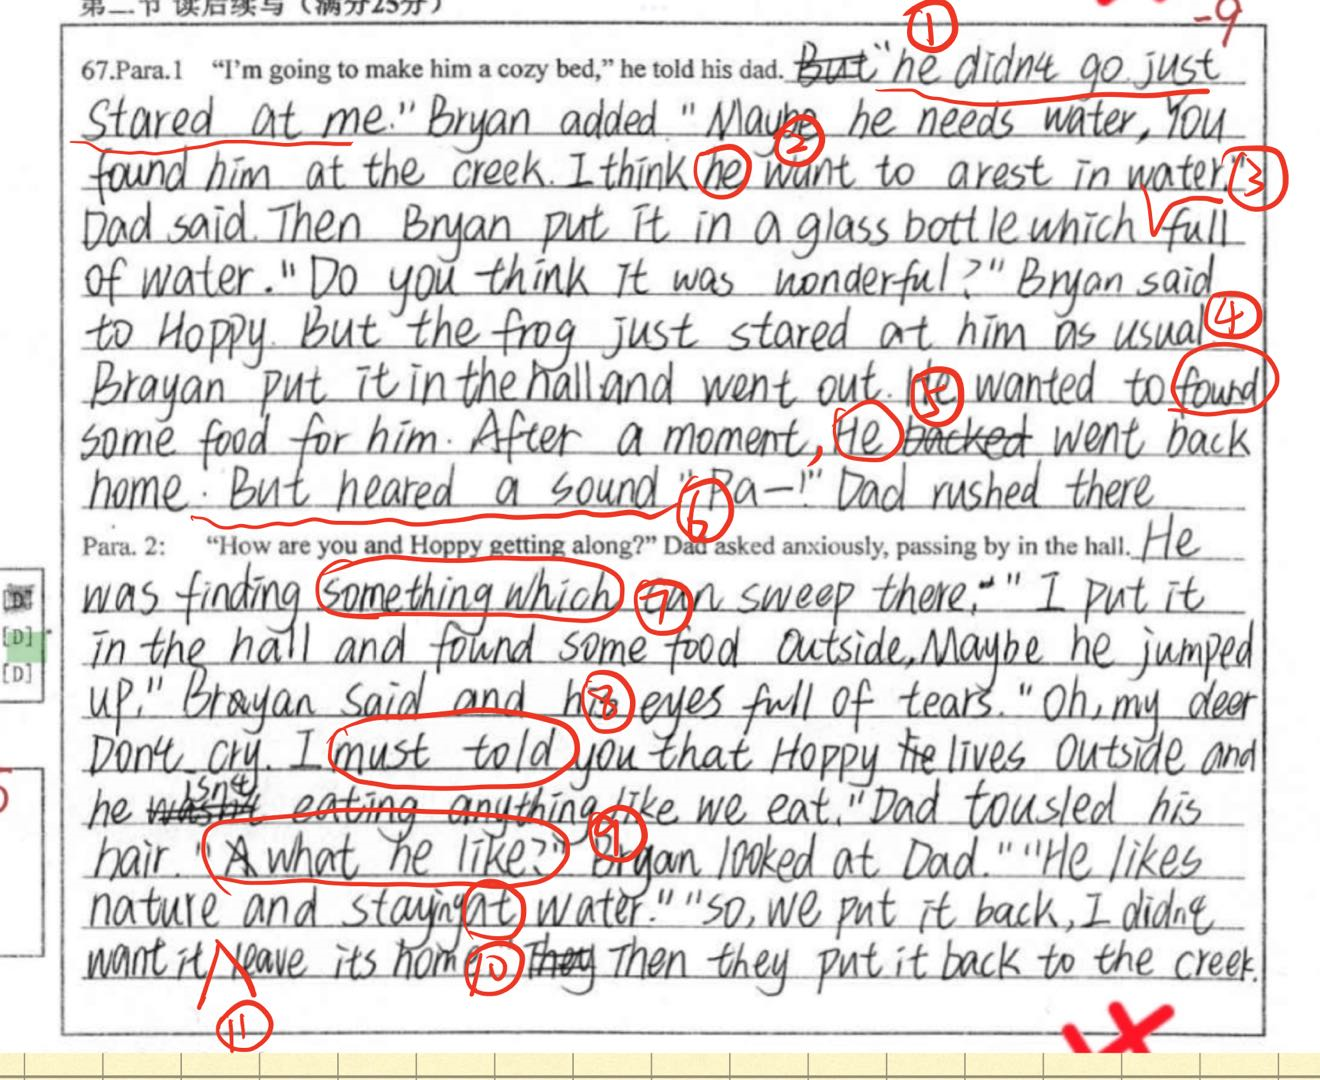 第二节 读后续写（满分25分）
-9
①
67.Para.1 “I’m going to make him a cozy bed,” he told his dad. But "he didn't go just
Stared at me." Bryan added "Maybe he needs water, You
②
found him at the creek. I think he want to arest in water." ③
Dad said. Then Bryan put it in a glass bottle which full
of water. "Do you think it was wonderful?" Bryan said
to Hoppy. But the frog just stared at him as usual ④
Brayan put it in the hall and went out. He wanted to found
⑤
some food for him. After a moment, He backed went back
home. But heared a sound "Pa—!" Dad rushed there
⑥
Para. 2: “How are you and Hoppy getting along?” Dad asked anxiously, passing by in the hall. He
was finding something which can sweep there." "I put it
⑦
[D]
in the hall and found some food outside, Maybe he jumped
[D]
[D]
up." Brayan said and his eyes full of tears. "Oh, my deer
⑧
Don't cry. I must told you that Hoppy he lives outside and
isn't
he wasn't eating anything like we eat." Dad tousled his
⑨
hair. "A what he like?" Bryan looked at Dad. ""He likes
nature and staying at water." "so, we put it back, I didn't
want it leave its home They Then they put it back to the creek.
⑩
⑪